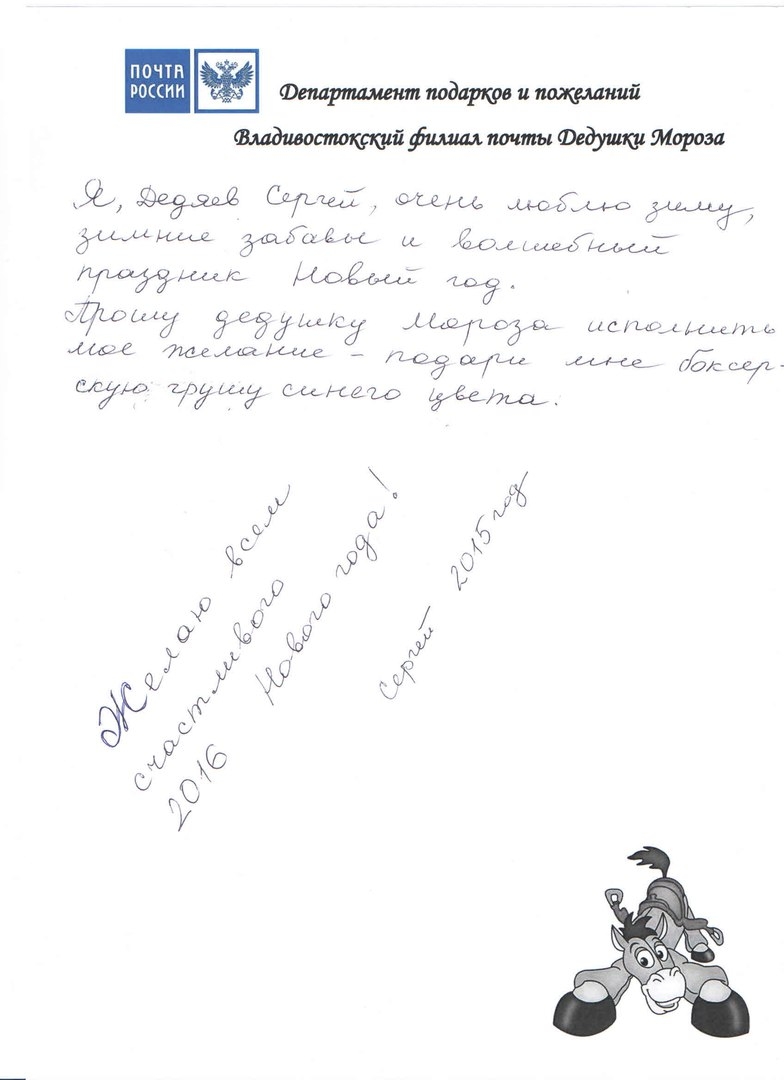 ПОЧТА
РОССИИ
Департамент подарков и пожеланий
Владивостокский филиал почты Дедушки Мороза
Я, Дедяев Сергей, очень люблю зиму,
зимние забавы и волшебный
праздник Новый год.
Прошу дедушку Мороза исполнить
мое желание - подари мне боксер-
скую грушу синего цвета.
Желаю всем
счастливого
2016 Нового года!
Сергей 2015 год